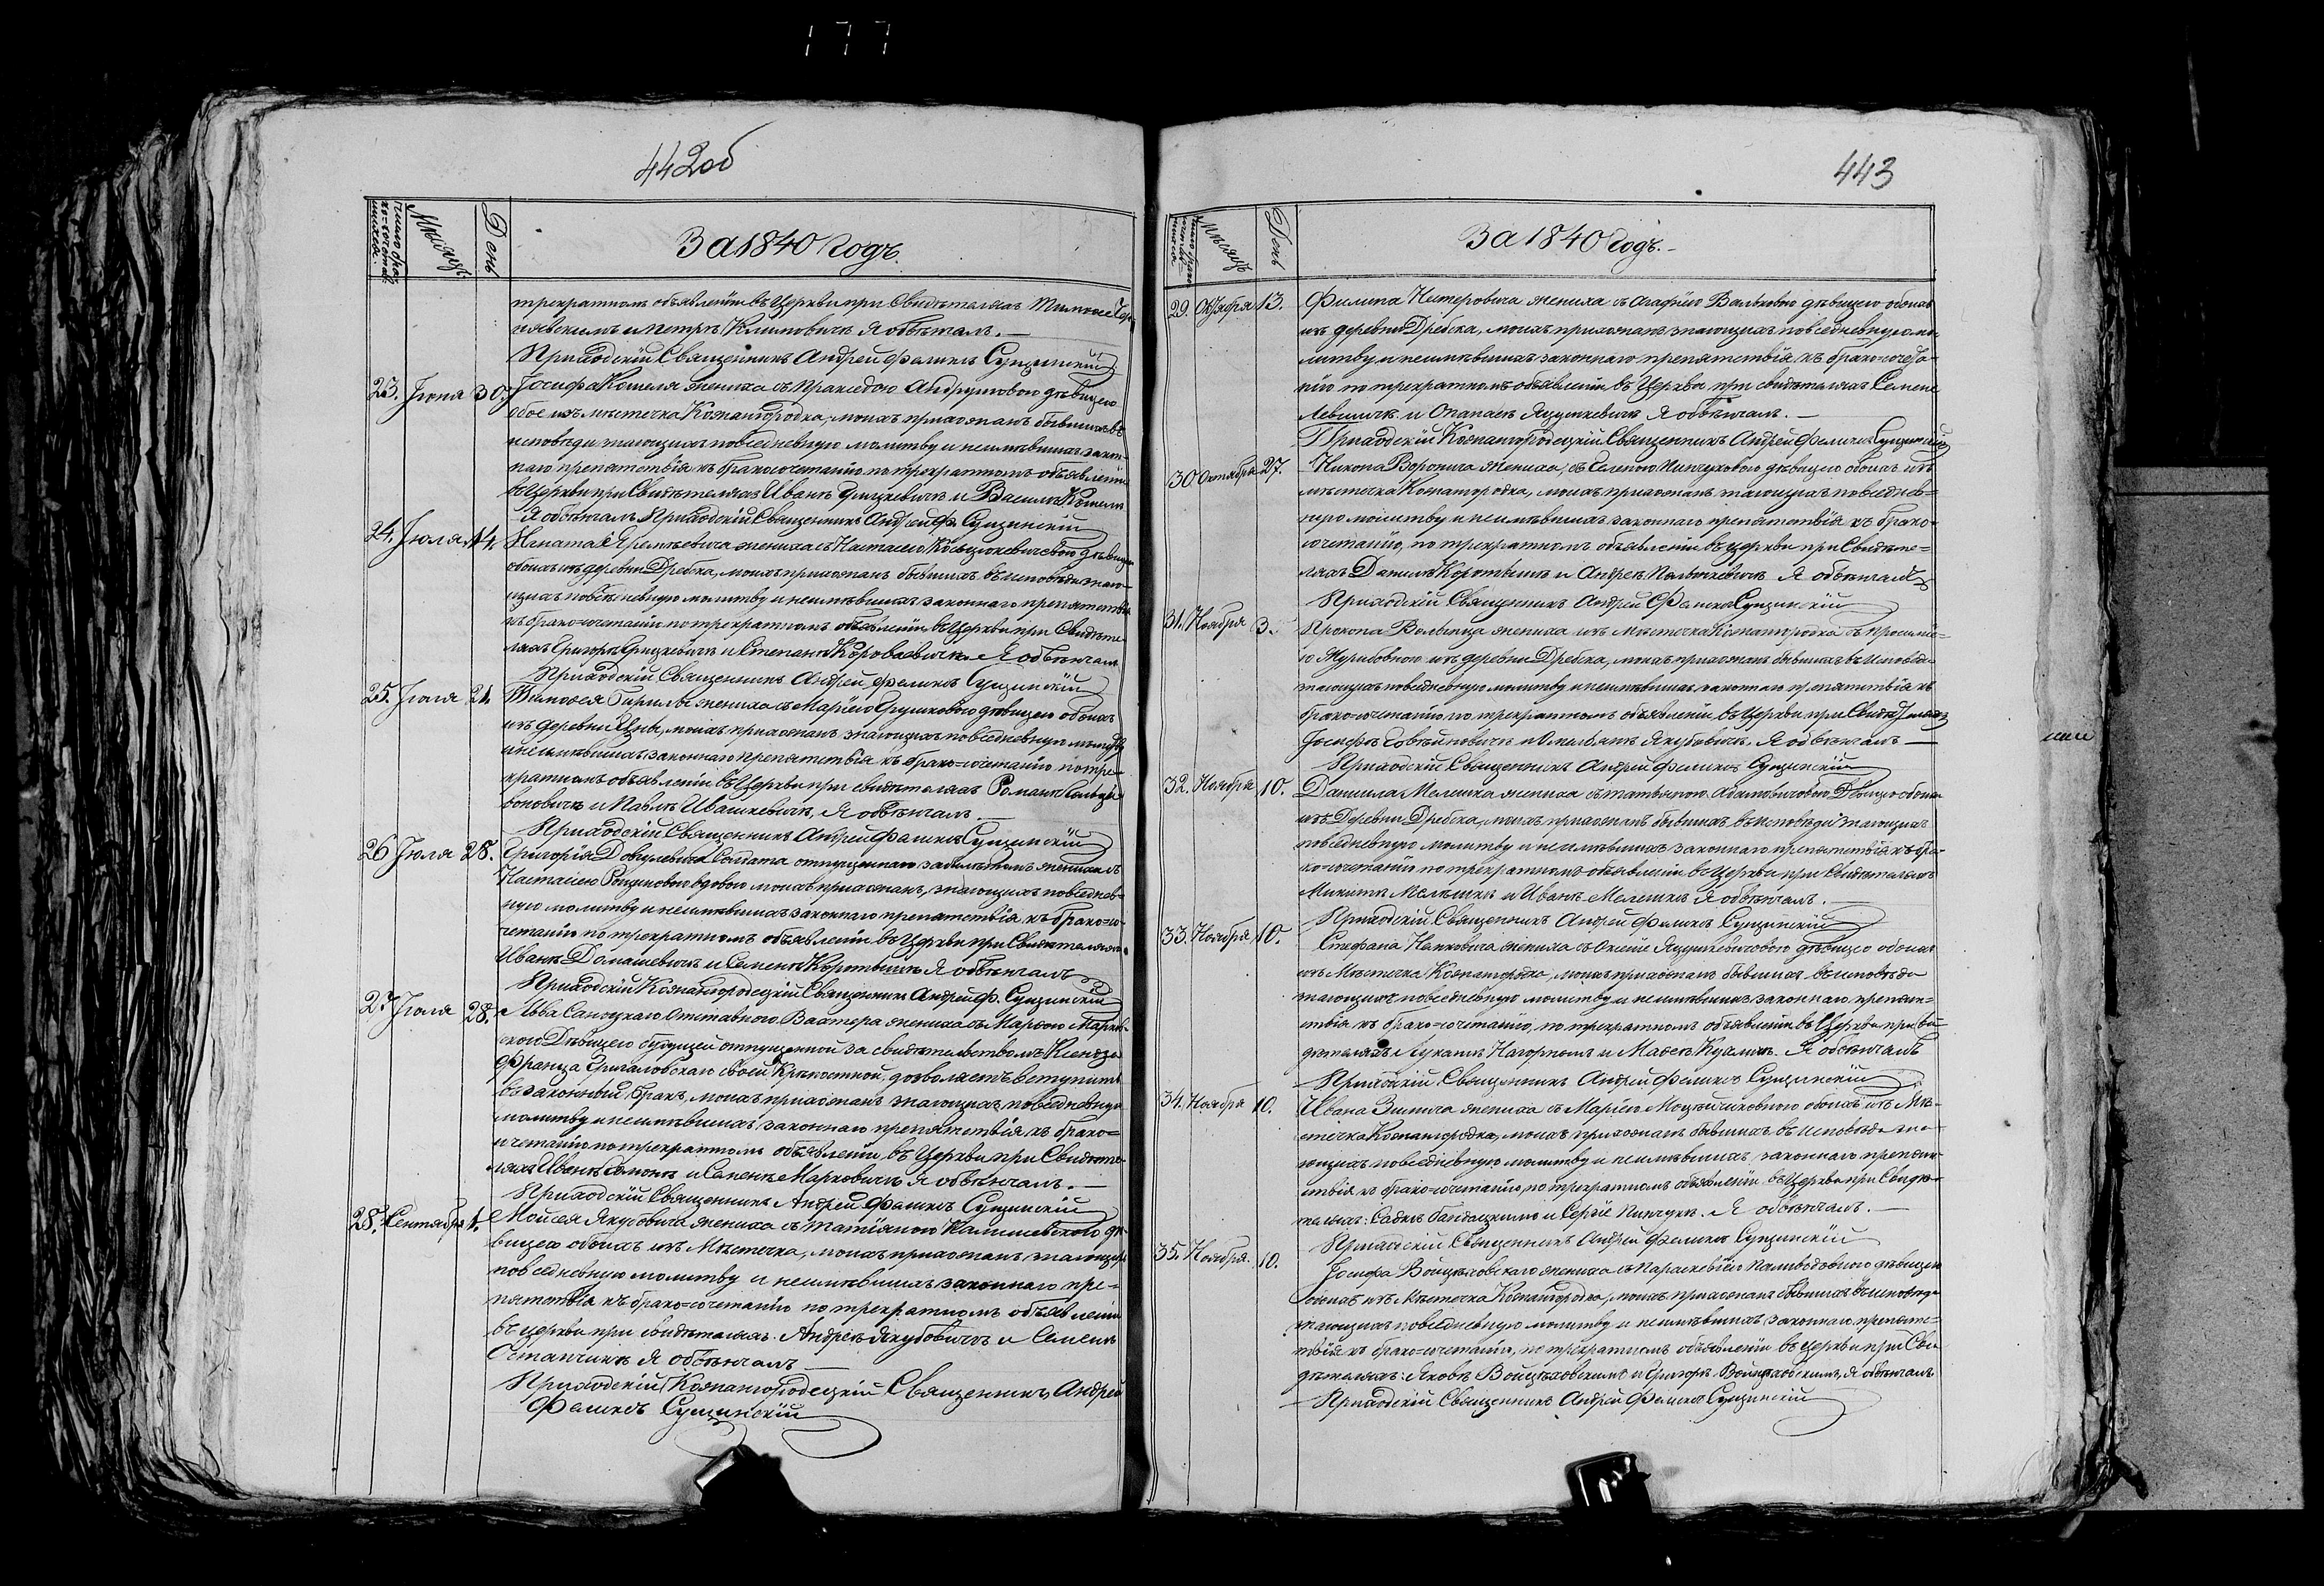 177
442об
число брако-сочетавшихся.
Мѣсяцъ
День
За 1840 Годъ.
трекратномъ объявленіи въ Церкви при Свидѣтеляхъ Тимоѳее
и Петрѣ Климовичѣ Я обвѣнчалъ.—
Приходскій Священникъ Андрей Феликсъ Сущинскій
23. Іюня 30. Іосифа Кошеля жениха съ Праксѣдою Андрушковою дѣвицею
обое изъ мѣстечка Кожангородка, моихъ прихожанъ бывшихъ въ
исповѣди знающихъ повседневную молитву и неимѣвшихъ закон-
наго препятствія къ бракосочетанію по трекратномъ объявленіи
въ Церкви при Свидѣтеляхъ Иванѣ Грицкевичѣ и Василѣ Кошелѣ
Я обвѣнчалъ Приходскій Священникъ Андрей Ф. Сущинскій
24. Іюля 14. Игната жениха съ Настасіею дѣвицею
обоихъ изъ деревни Дребска, моихъ прихожанъ бывшихъ въ исповѣди знаю-
щихъ повседневную молитву и неимѣвшихъ законнаго препятствія
къ брако-сочетанію по трекратномъ объявленіи въ Церкви при Свидѣте-
ляхъ Григорѣ Грицкевичѣ и Степанѣ Я обвѣнчалъ
Приходскій Священникъ Андрей Феликсъ Сущинскій
25. Іюля 21. Тимоѳея Гаврилы жениха съ Маріею Грушковою дѣвицею обоихъ
изъ деревни Цны, моихъ прихожанъ знающихъ повседневную молитву
и неимѣвшихъ законнаго препятствія къ брако-сочетанію по тре-
кратномъ объявленіи въ Церкви при свидѣтеляхъ Романѣ
и Павлѣ Ивашкевичѣ, Я обвѣнчалъ.
Приходскій Священникъ Андрей Феликсъ Сущинскій
26 Іюля 28. Григорія Довгулевича Солдата отпущеннаго за билѣтомъ жениха съ
Настасіею Рощиновою вдовою моихъ прихожанъ, знающихъ повседнев-
ную молитву и неимѣвшихъ законнаго препятствія къ брако-со-
четанію по трекратномъ объявленіи въ Церкви при Свидѣтеляхъ
Иванѣ Домашевичѣ и Семенѣ Коротышѣ Я обвѣнчалъ
Приходскій Кожангородецкій Священникъ Андрей Ф. Сущинскій
27 Іюля 28. Льва Саноцкаго Отставного Вахтера жениха съ Марѳою
Дѣвицею будущей отпущенной за свидѣтельствомъ Ксендза
Франца своей Крѣпостной, дозволяетъ вступить
въ законный бракъ, моихъ прихожанъ знающихъ повседневную
молитву и неимѣвшихъ законнаго препятствія къ брако-
сочетанію по трекратномъ объявленіи въ Церкви при Свидѣте-
ляхъ Иванѣ и Семенѣ Марковичѣ Я обвѣнчалъ.—
Приходскій Священникъ Андрей Феликсъ Сущинскій
28. Сентября 1. Моисея Якубовича жениха съ Татіяною дѣ-
вицею обоихъ изъ Мѣстечка, моихъ прихожанъ знающихъ
повседневную молитву и неимѣвшихъ законнаго пре-
пятствія къ брако-сочетанію по трекратномъ объявленіи
въ церкви при свидѣтеляхъ. Андреѣ Якубовичѣ и Семенѣ
Останчикѣ Я обвѣнчалъ—
Приходскій Кожангородецкій Священникъ Андрей
Феликсъ Сущинскій
443
Мѣсяцъ
День
За 1840 Годъ.—
29. Октября 13. Филипа Нестеровича жениха съ Агафіею Вальковою дѣвицею обоихъ
изъ деревни Дребска, моихъ прихожанъ знающихъ повседневную мо-
литву и неимѣвшихъ законнаго препятствія къ брако-сочета-
нію по трекратномъ объявленіи въ Церкви при свидѣтеляхъ Семене
и Опанасѣ Яцушкевичѣ Я обвѣнчалъ.—
Приходскій Кожангородецкій Священникъ Андрей Феликсъ Сущинскій
30. Октября 27. Никона Воронича жениха, съ Еленою Пинчуковою дѣвицею обоихъ изъ
мѣстечка Кожангородка, моихъ прихожанъ знающихъ повседнев-
ную молитву и неимѣвшихъ законнаго препятствія къ брако-
сочетанію, по трекратномъ объявленіи въ церкви при Свидѣте-
ляхъ Данилѣ Коротышѣ и Андреѣ Я обвѣнчалъ
Приходскій Священникъ Андрей Феликсъ Сущинскій
31. Ноября 3. Прокопа Волынца жениха изъ мѣстечка Кожангородка съ
Журибовною изъ деревни Дребска, моихъ прихожанъ бывшихъ въ исповѣди
знающихъ повседневную молитву и неимѣвшихъ законнаго препятствія къ
брако-сочетанію по трекратномъ объявленіи въ Церкви при Свидѣтеляхъ
Іосифѣ и Омельянѣ Якубовичѣ. Я обвѣнчалъ—
Приходскій Священникъ Андрей Феликсъ Сущинскій
32. Ноября 10. Даниила Мелешка жениха съ Татьяною Адамовичовою Дѣвицею обоихъ
изъ Деревни Дребска, моихъ прихожанъ бывшихъ въ исповѣди знающихъ
повседневную молитву и неимѣвшихъ законнаго препятствія къ бра-
ко-сочетанію по трекратномъ объявленіи въ Церкви при Свидѣтеляхъ
Микитѣ Мелешкѣ и Иванѣ Мелешкѣ Я обвѣнчалъ.
Приходскій Священникъ Андрей Феликсъ Сущинскій
33. Ноября 10. Стефана жениха съ Оксенею дѣвицею обоихъ
изъ Мѣстечка Кожангородка, моихъ прихожанъ бывшихъ въ исповѣди
знающихъ повседневную молитву и неимѣвшихъ законнаго препят-
ствія къ брако-сочетанію, по трекратномъ объявленіи въ Церкви при сви-
дѣтеляхъ Лукашѣ Нагорномъ и Мавсѣѣ Я обвѣнчалъ
Приходскій Священникъ Андрей Феликсъ Сущинскій
34. Ноября 10. Ивана Зинича жениха съ Маріею обоихъ изъ Мѣ-
стечка Кожангородка, моихъ прихожанъ бывшихъ въ исповѣди зна-
ющихъ повседневную молитву и неимѣвшихъ законнаго препят-
ствія къ брако-сочетанію, по трекратномъ объявленіи въ Церкви при Свидѣ-
теляхъ: и Сергіѣ Пинчукѣ. Я обвѣнчалъ.—
Приходскій Священникъ Андрей Феликсъ Сущинскій
35. Ноября. 10. Іосифа Войцѣховскаго жениха съ Параскевіею дѣвицею
обоихъ изъ Мѣстечка Кожангородка, моихъ прихожанъ бывшихъ въ исповѣди
знающихъ повседневную молитву и неимѣвшихъ законнаго препят-
ствія къ брако-сочетанію, по трекратномъ объявленіи въ Церкви при Сви-
дѣтеляхъ: Яковѣ Войцѣховскимъ и Григорѣ Войцѣховскимъ, Я обвѣнчалъ
Приходскій Священникъ Андрей Феликсъ Сущинскій